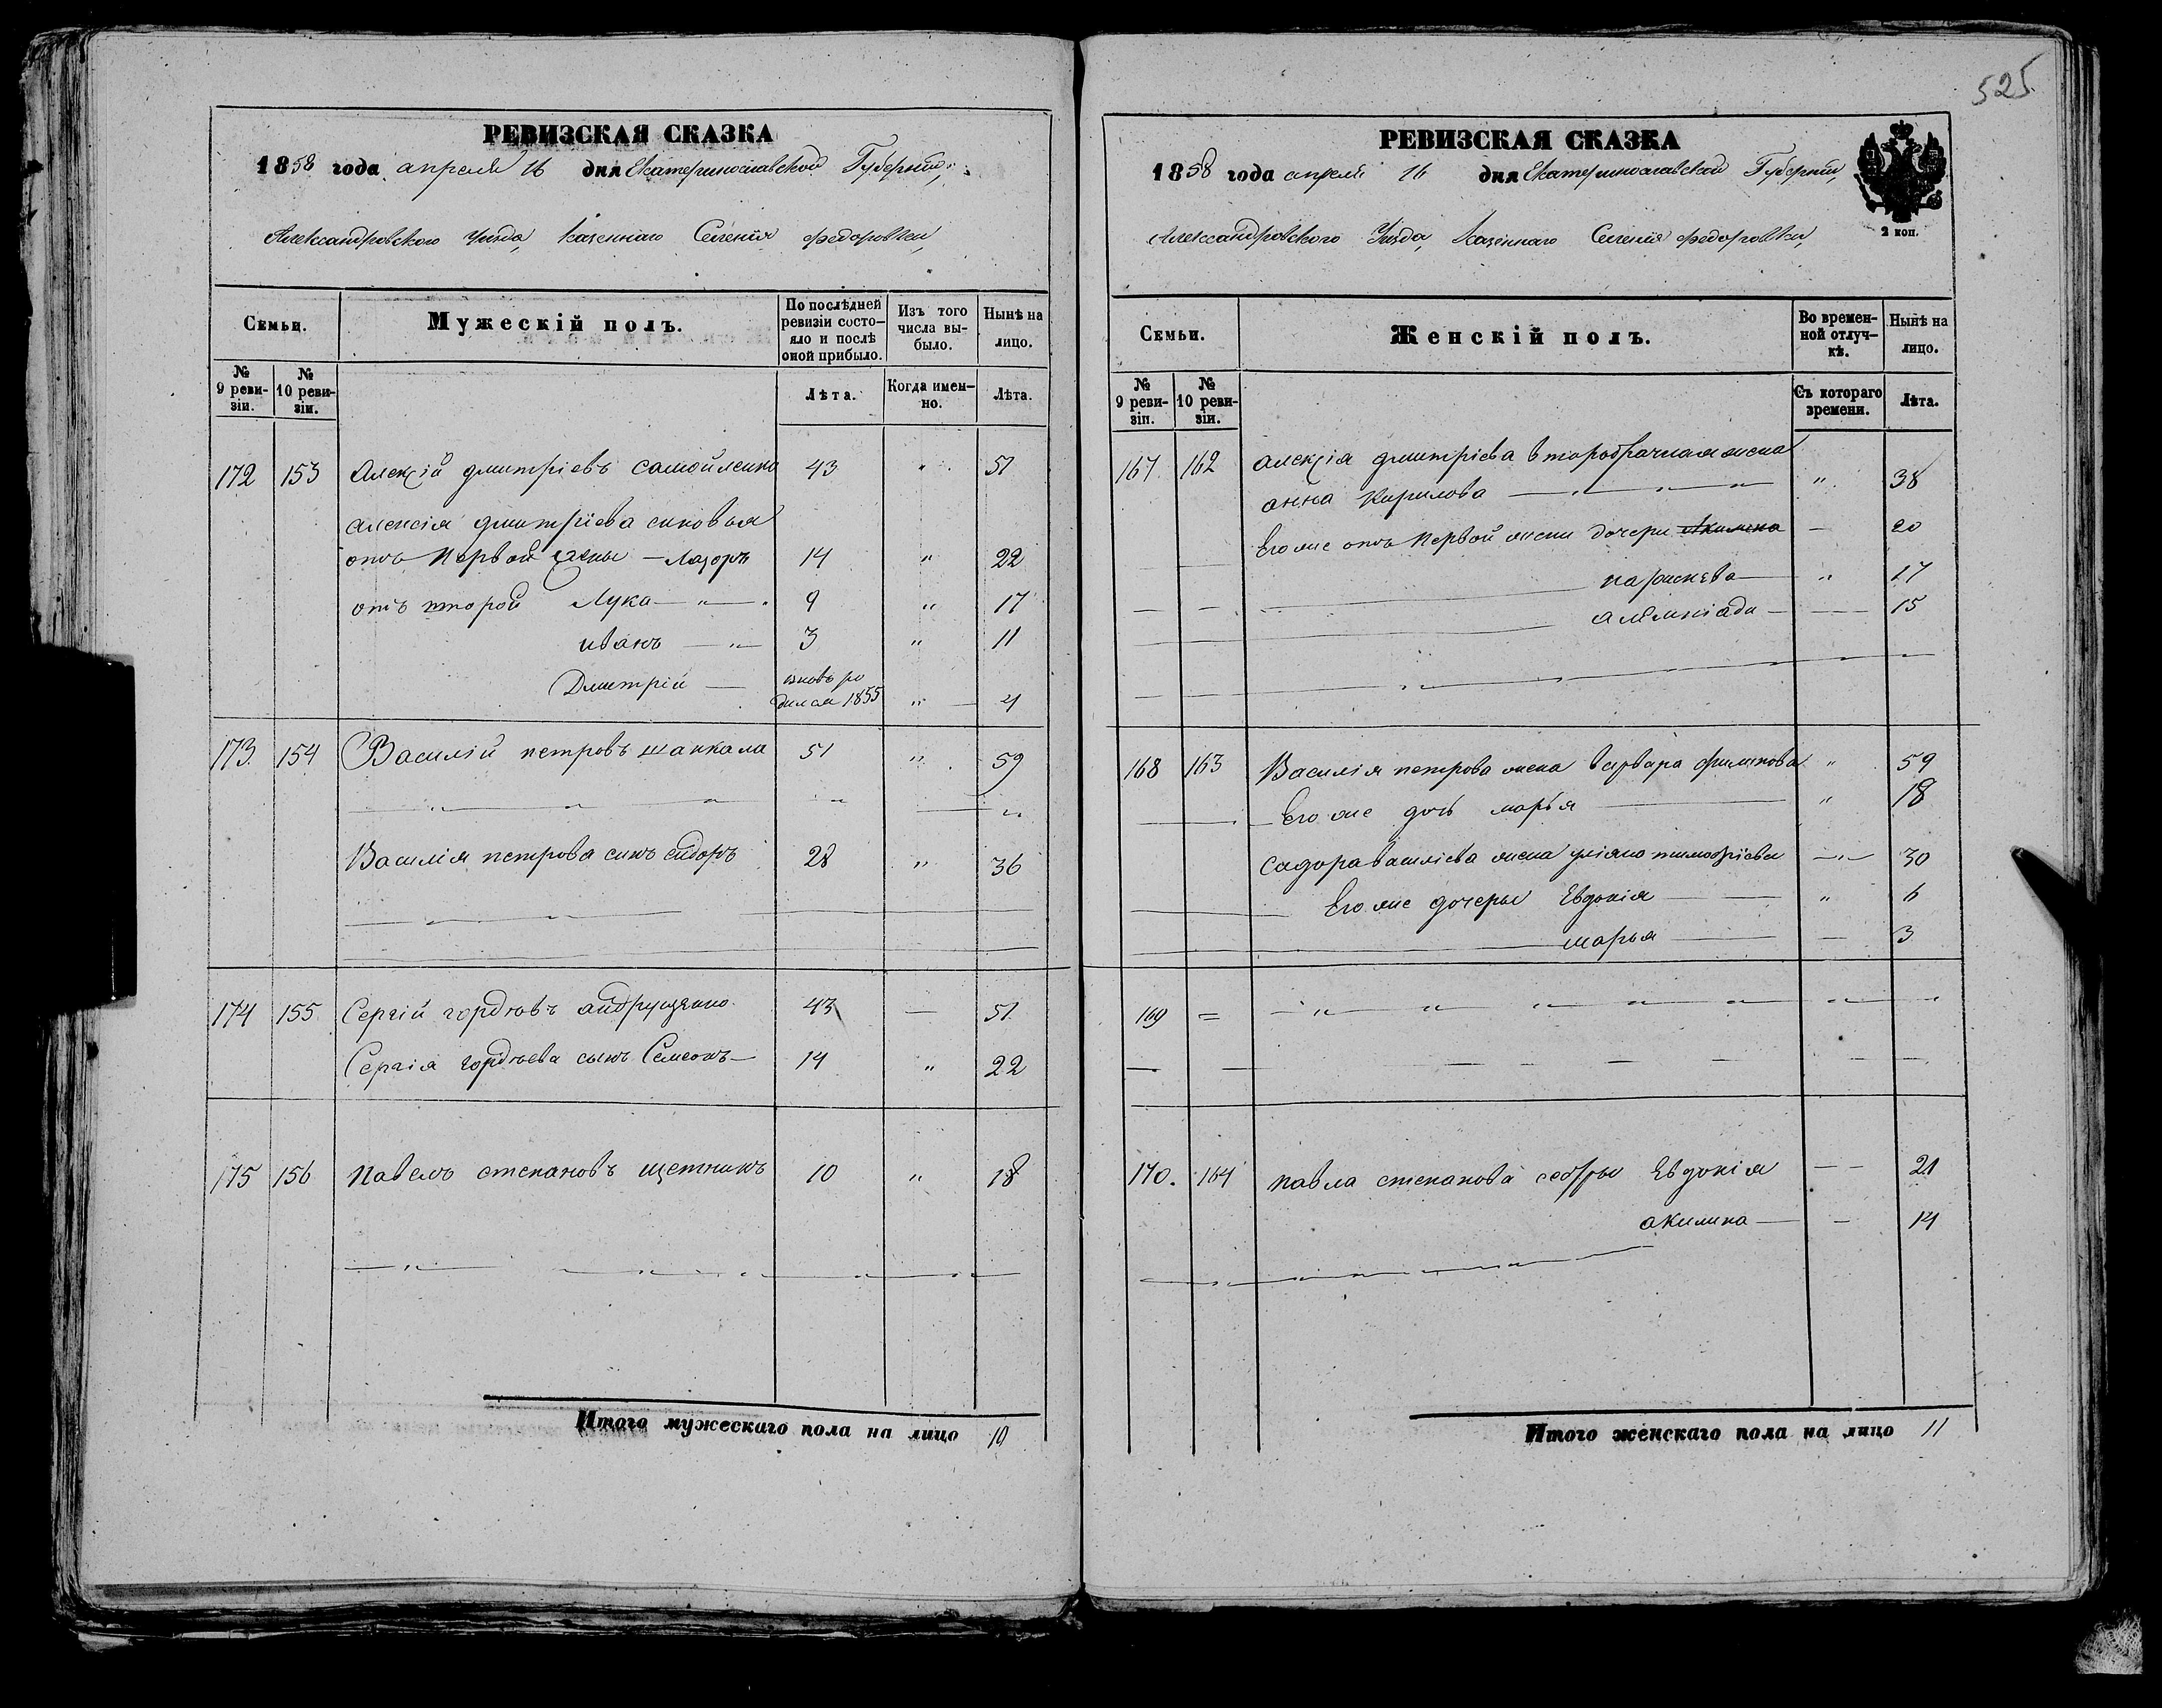 525
РЕВИЗСКАЯ СКАЗКА
1858 года апреля 16 дня Екатеринославской Губерніи,
Александровского Уѣзда, Казеннаго Селенія Федоровки,
Семьи.
Мужескій полъ.
По послѣдней ревизіи состо-
яло и послѣ оной прибыло.
Изъ того числа вы-
было.
Нынѣ на лицо.
№ 9 реви-
зіи.
№ 10 реви-
зіи.
Лѣта.
Когда имен-
но.
Лѣта.
172 153 Алексій дмитріевъ самойленко 43 " 51
алексія дмитріева сыновья
отъ Первой жены — Лазорь 14 " 22
отъ второй Лука — " — 9 " 17
иванъ — " — 3 " 11
Дмитрій — вновь ро
дился 1855 " 4
173 154 Василій петровъ шаккала 51 " 59
Василія петрова сынъ сидоръ 28 " 36
174 155 Сергій гордѣевъ андрущенко 43 — 51
Сергія гордѣева сынъ Семеонъ — 14 " 22
175 156 Павелъ степановъ щетникъ 10 " 18
Итого мужескаго пола на лицо 10
РЕВИЗСКАЯ СКАЗКА
1858 года апреля 16 дня Екатеринославской Губерніи,
Александровского Уѣзда, Казеннаго Селенія Федоровки,
2 коп.
Семьи.
Женскій полъ.
Во времен-
ной отлуч-
кѣ.
Нынѣ на лицо.
№ 9 реви-
зіи.
№ 10 реви-
зіи.
Съ котораго времени.
Лѣта.
167 162 алексія дмитріева второбрачная жена
анна Кирилова — " — " — " 38
Его же отъ Первой жены дочери — 20
параскева — " 17
15
168 163 Василія петрова жена варвара филипова " 59
Его же дочь марья " 18
сидора василіева жена уліяна тимофіева — " — 30
Его же дочеры Евдокія " 6
марья — 3
169 =
170. 164 павла степанова сестры Евдокія — — 21
акилина — — 14
Итого женскаго пола на лицо 11